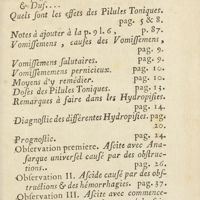 & Dus....
Quels sont les effets des Pilules Toniques.
pag. 5 & 8.
Notes à ajouter à la p. 9 l. 6, p. 87.
Vomissemens, causes des Vomissemens,
pag. 9.
Vomissemens salutaires. pag. 9.
Vomissemens pernicieux. pag. 10.
Moyens d'y remédier. pag. 10.
Doses des Pilules Toniques. pag. 13.
Remarques à faire dans les Hydropisies.
pag. 14.
Diagnostic des différentes Hydropisies. pag.
20.
Prognostic. pag. 24.
Observation premiere. Ascite avec Ana-
sarque universel causé par des obstruc-
tions.. pag. 26.
Observation II. Ascide causé par des obs-
tructions & des hémorrhagies. pag. 37.
Observation III. Ascite avec commence-